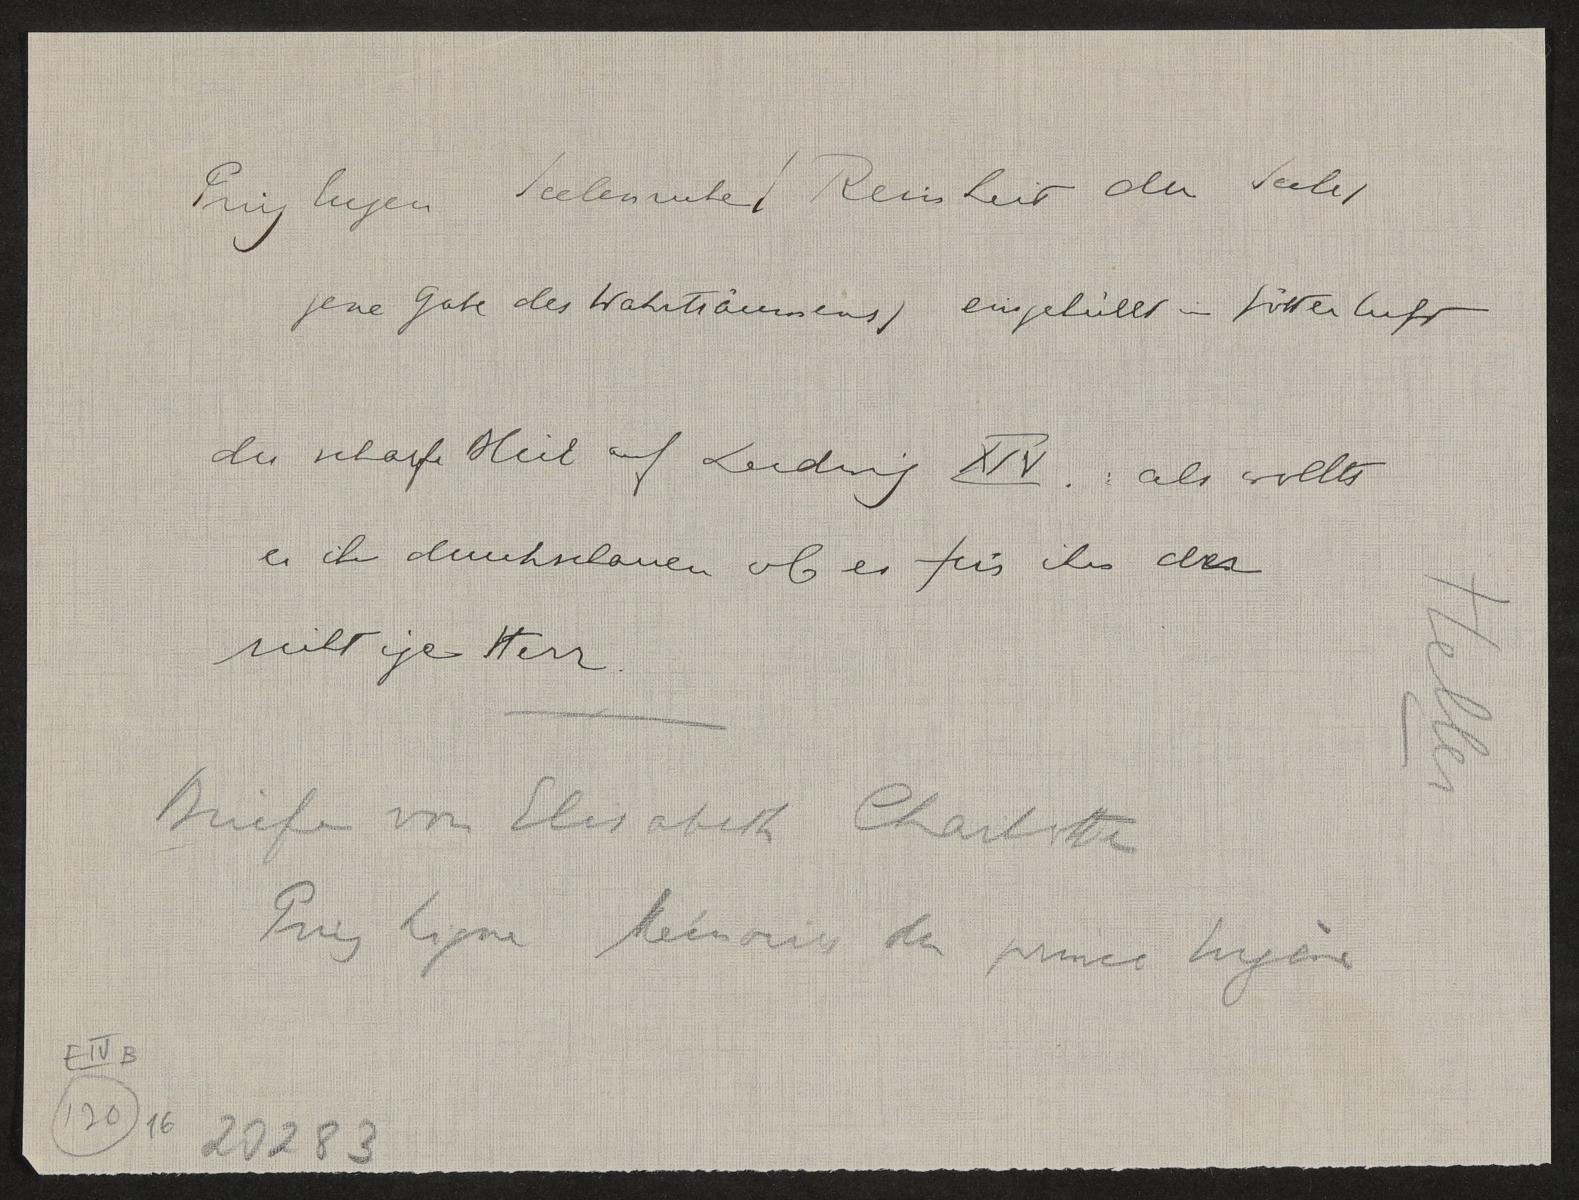 Prinz Eugen Seelenruhe / Reinheit der Seele /
jene Gabe des Wahrträumens / eingehüllt in Götterluft
der scharfe Blick auf Ludwig XIV. : als wollte
er ihn durchschauen ob es für ihn der
richtige Herr.
Briefe von Elisabeth Charlotte
Prinz Ligne Mémoires du prince Eugène
Heller
E IV B
120 16 20283